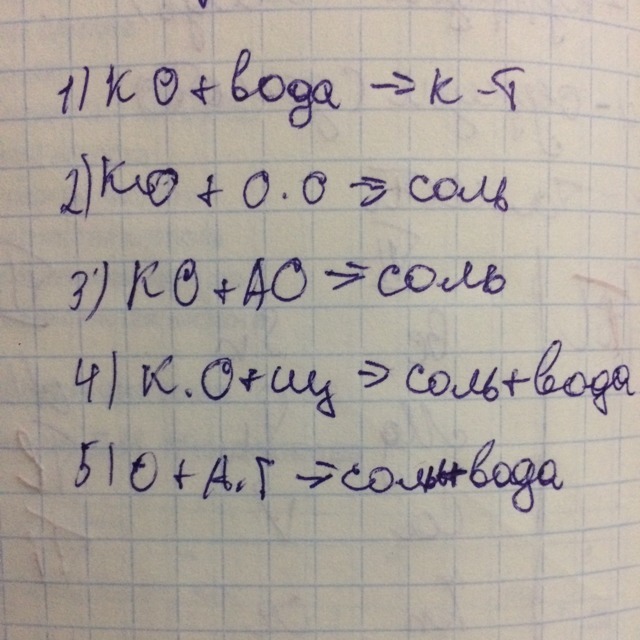 1) К О + вода → К-Т
2) КО + О.О → соль
3) КО + АО → соль
4) К.О + щ → соль + вода
5) О + А.Г → соль + вода